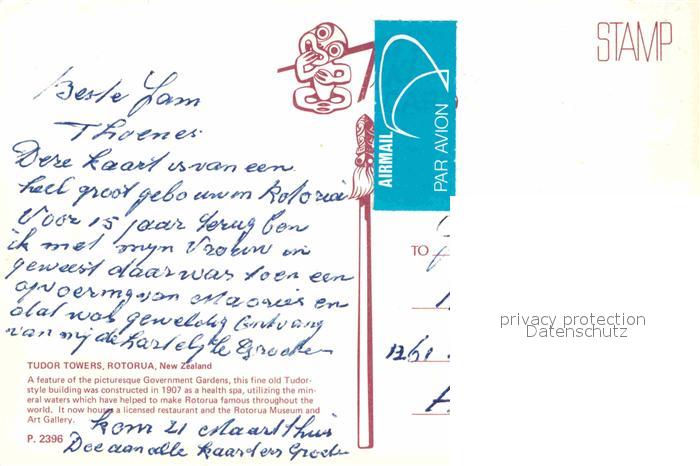 STAMP
AIRMAIL
PAR AVION
Beste Fam
Thoenes.
Deze kaart is van een
heel groot gebouw in Rotorua
Voor 15 jaar terug ben
ik met mijn Vrouw in
geweest daar was toen een
opvoering van Maories en
dat was geweldig Ontvang
van mij de hartelijke Groeten
TO
1261
privacy protection
Datenschutz
TUDOR TOWERS, ROTORUA, New Zealand
A feature of the picturesque Government Gardens, this fine old Tudor-
style building was constructed in 1907 as a health spa, utilizing the min-
eral waters which have helped to make Rotorua famous throughout the
world. It now houses a licensed restaurant and the Rotorua Museum and
Art Gallery.
P. 2396
kom 21 Maart thuis
Doe aan alle kaarters Groeten